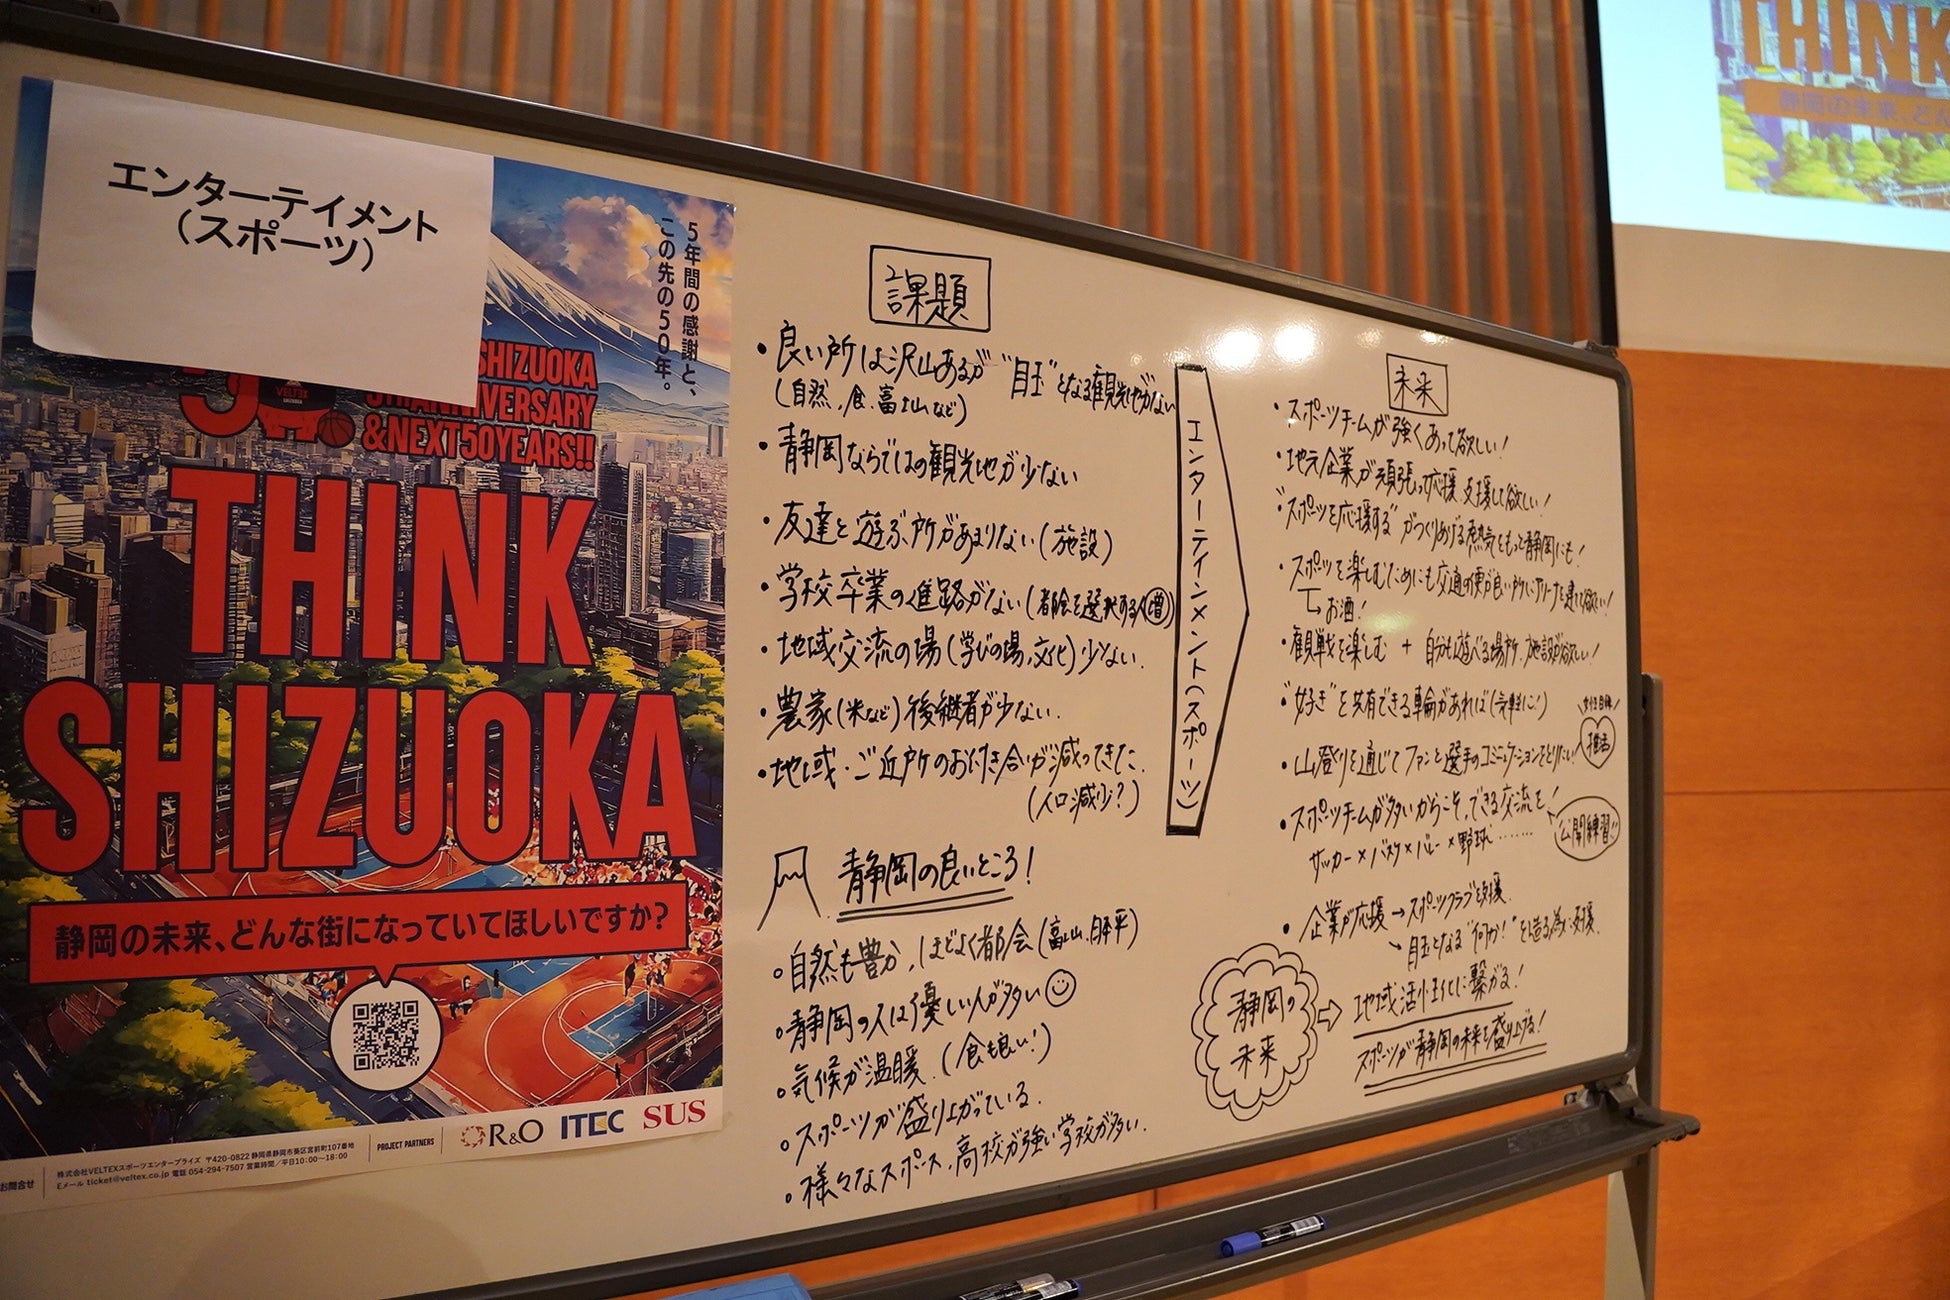 エンターテイメント
（スポーツ）
5年間の感謝と、
この先の50年。
SHIZUOKA
5TH ANNIVERSARY
&NEXT50YEARS!!
VELTEX
SHIZUOKA
THINK
SHIZUOKA
静岡の未来、どんな街になっていてほしいですか?
お問合せ
株式会社VELTEXスポーツエンタープライズ 〒420-0822 静岡県静岡市葵区宮前町107番地
Eメール ticket@veltex.co.jp 電話 054-294-7507 営業時間／平日10:00〜18:00
PROJECT PARTNERS
R&O ITEC SUS
課題
・良い所は沢山あるが"目玉"となる観光地がない
(自然、食、富士山など)
・静岡ならではの観光地が少ない
・友達と遊ぶ所があまりない(施設)
・学校卒業の進路がない(都会を選択する人増)
・地域交流の場(学びの場、文化)少ない.
・農家(米など)後継者が少ない.
・地域・ご近所のお付き合いが減ってきた.
(人口減少?)
静岡の良いところ!
。自然も豊か、ほどよく都会(富士山、日本平)
。静岡の人は優しい人が多い
。気候が温暖.(食も良い!)
。スポーツが盛り上がっている.
。様々なスポーツ、高校が強い学校が多い.
エンターテインメント(スポーツ)
未来
・スポーツチームが強くあって欲しい!
・地元企業が頑張って応援、支援して欲しい!
・"スポーツを応援する"がつくりあげる熱気をもっと静岡にも!
・スポーツを楽しむためにも交通の便が良い所にアリーナを建てて欲しい!
お酒!
・観戦を楽しむ + 自分も遊べる場所、施設が欲しい!
・"好き"を共有できる車輪があれば
・山登りを通じてファンと選手のコミュニケーションをとりたい
推活
・スポーツチームが多いからこそ、できる交流を!
公開練習!!
サッカー×バスケ×バレー×野球……
・企業が応援→スポーツクラブを支援.
目玉となる"何か!"を造る為に支援.
静岡の
未来
⇨
地域活性化に繋がる!
スポーツが静岡の未来を盛り上げる!
THINK
静岡の未来、どん